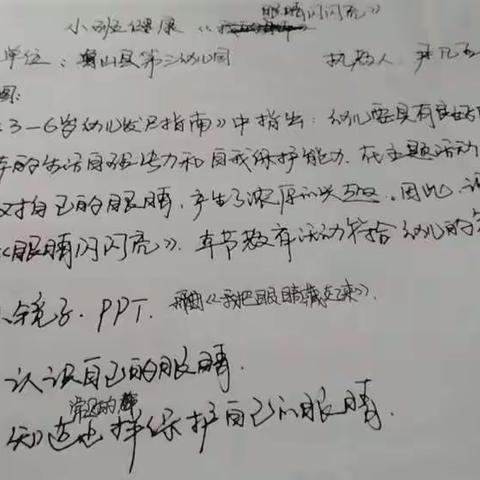 小班健康《眼睛闪闪亮》
单位:山县第三幼儿园 执教人
图:
3-6岁幼儿发展指南》中指出:幼儿要具有良好的
的生活自理能力和自我保护能力.在主题活动
对自己的眼睛,产生了浓厚的兴趣.因此,
《眼睛闪闪亮》.本节教育活动符合幼儿的
、镜子.PPT.《我把眼睛藏起来》.
认识自己的眼睛.
知道怎样保护自己的眼睛.